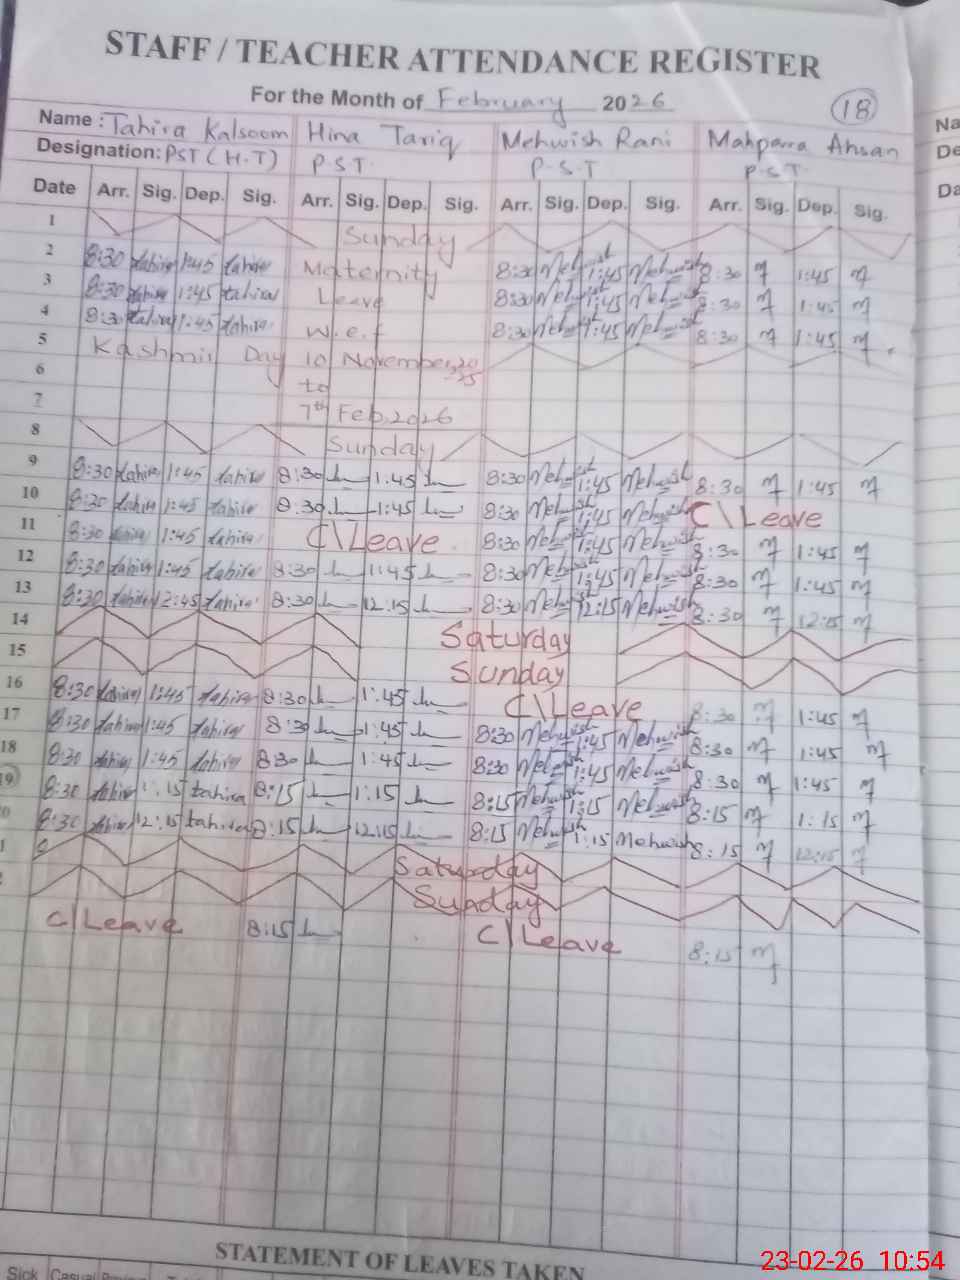 STAFF / TEACHER ATTENDANCE REGISTER
For the Month of February 2026
18
Name : Tahira Kalsoom Hina Tariq Mehwish Rani Mahparra Ahsan
Designation: PST (H.T) P.S.T. P.S.T P.S.T.
Date Arr. Sig. Dep. Sig. Arr. Sig. Dep. Sig. Arr. Sig. Dep. Sig. Arr. Sig. Dep. Sig.
1 Sunday
2 8:30 tahira 1:45 tahira Maternity 8:30 Mehwish 1:45 Mehwish 8:30 m 1:45 m
3 8:30 tahira 1:45 tahira Leave 8:30 Mehwish 1:45 Mehwish 8:30 m 1:45 m
4 8:30 tahira 1:45 tahira W.e.f 8:30 Mehwish 1:45 Mehwish 8:30 m 1:45 m
5 Kashmir Day 10 November, 2025
6 to
7 7th Feb, 2026
8 Sunday
9 8:30 tahira 1:45 tahira 8:30 1:45 8:30 Mehwish 1:45 Mehwish 8:30 m 1:45 m
10 8:30 tahira 1:45 tahira 8:30 1:45 8:30 Mehwish 1:45 Mehwish C\Leave
11 8:30 tahira 1:45 tahira C\Leave 8:30 Mehwish 1:45 Mehwish 8:30 m 1:45 m
12 8:30 tahira 1:45 tahira 8:30 1:45 8:30 Mehwish 1:45 Mehwish 8:30 m 1:45 m
13 8:30 tahira 12:45 tahira 8:30 12:15 8:30 Mehwish 12:15 Mehwish 8:30 m 12:15 m
14 Saturday
15 Sunday
16 8:30 tahira 1:45 tahira 8:30 1:45 C\Leave 8:30 m 1:45 m
17 8:30 tahira 1:45 tahira 8:30 1:45 8:30 Mehwish 1:45 Mehwish 8:30 m 1:45 m
18 8:30 tahira 1:45 tahira 8:30 1:45 8:30 Mehwish 1:45 Mehwish 8:30 m 1:45 m
19 8:30 tahira 1:15 tahira 8:15 1:15 8:15 Mehwish 1:15 Mehwish 8:15 m 1:15 m
0 8:30 tahira 12:15 tahira 8:15 12:15 8:15 Mehwish 1:15 Mehwish 8:15 m 12:15 m
1 Saturday
Sunday
C\Leave 8:15 C\Leave 8:15 m
STATEMENT OF LEAVES TAKEN
Sick Casual
23-02-26 10:54
Na
De
Da